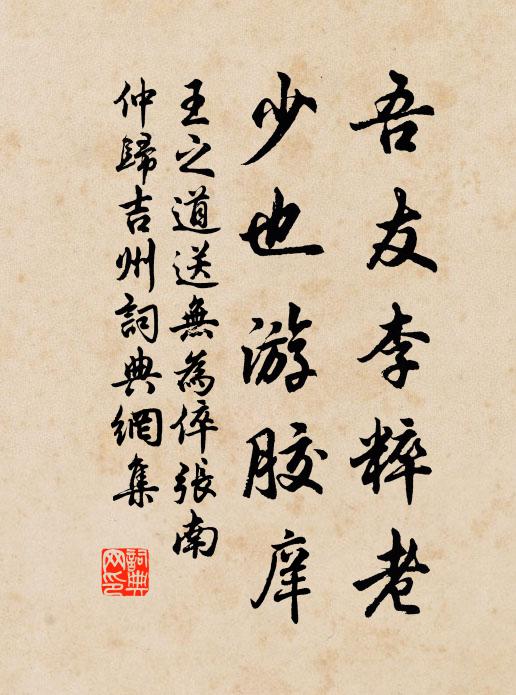 吾友李粹老
少也游胶庠
王之道送無為倅張南
仲歸吉州詞典網集
詞典网印